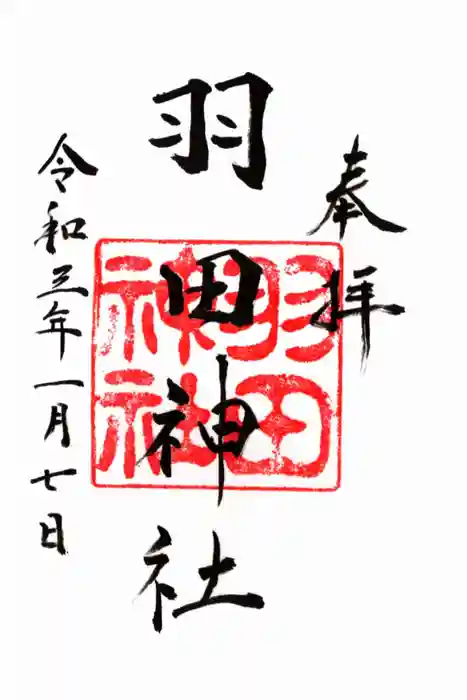 奉拝
羽田神社
羽田
神社
令和三年一月七日